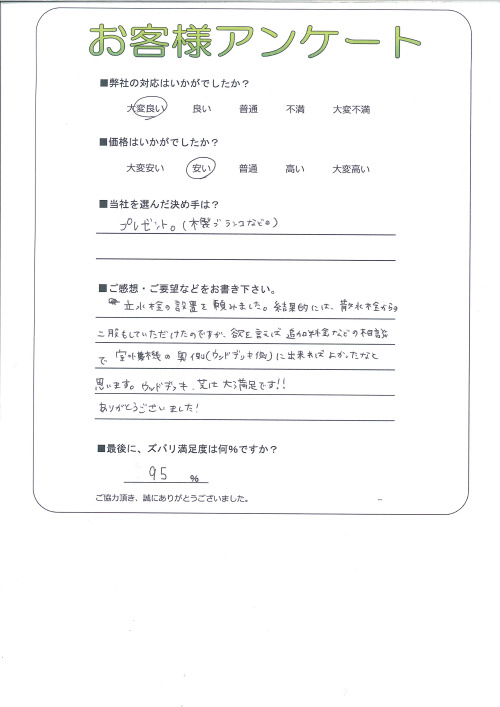 お客様アンケート
■弊社の対応はいかがでしたか？
大変良い 良い 普通 不満 大変不満
■価格はいかがでしたか？
大変安い 安い 普通 高い 大変高い
■当社を選んだ決め手は？
プレゼント。(木製ブランコなど)
■ご感想・ご要望などをお書き下さい。
立水栓の設置を頼みました。結果的には、散水栓から
二股もしていただけたのですが、欲を言えば追加料金などの相談
で室外機の奥側(ウッドデッキ側)に出来ればよかったなと
思います。ウッドデッキ、芝は大満足です!!
ありがとうございました!
■最後に、ズバリ満足度は何%ですか？
95 %
ご協力頂き、誠にありがとうございました。